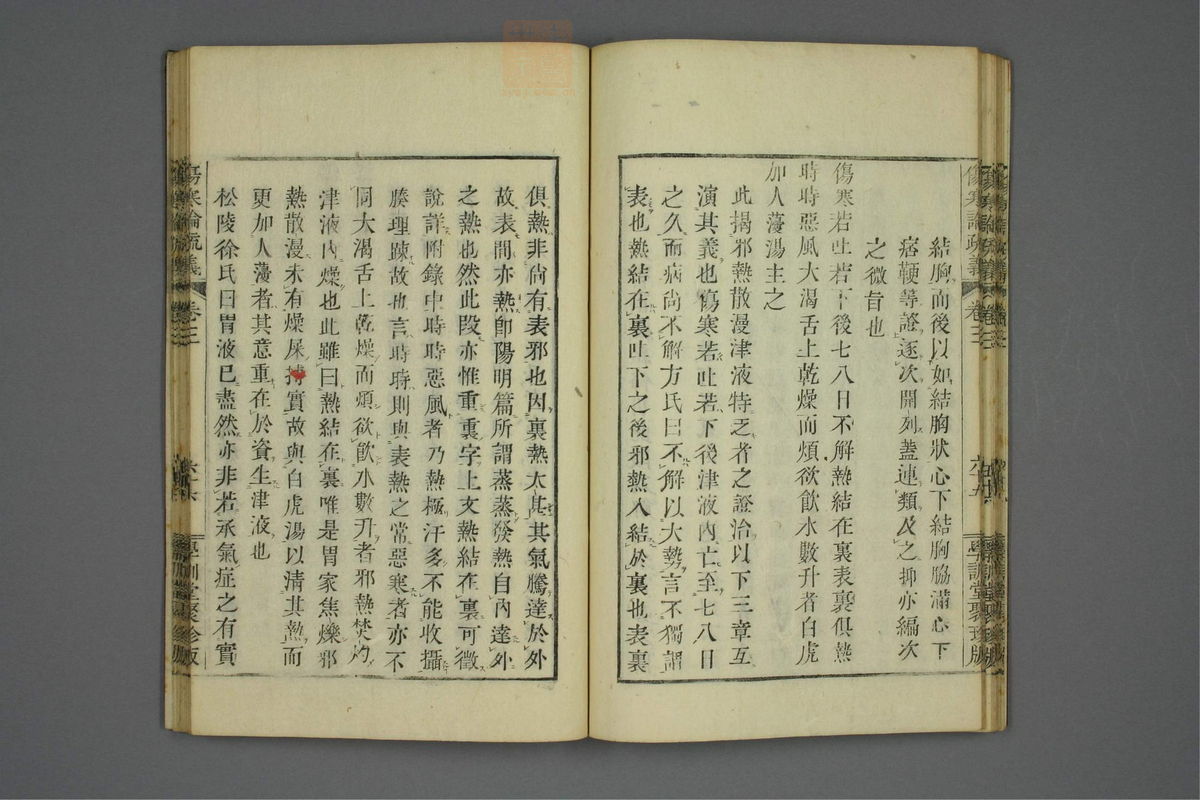 結胸而後以如結胸狀心下結胸脇滿心下
痞鞕等證逐次開列蓋連類及之抑亦編次
之微旨也
傷寒若吐若下後七八日不解熱結在裏表裏俱熱
時時惡風大渴舌上乾燥而煩欲飲水數升者白虎
加人蓡湯主之
此揭邪熱散漫津液特乏者之證治以下三章互
演其義也傷寒若吐若下後津液內亡至七八日
之久而病尚不解方氏曰不解以大勢言不獨謂
表也熱結在裏吐下之後邪熱入結於裏也表裏
俱熱非尚有表邪也因裏熱太甚其氣騰達於外
故表間亦熱卽陽明篇所謂蒸蒸發熱自內達外
之熱也然此段亦惟重裏字上文熱結在裏可徵
說詳附錄中時時惡風者乃熱極汗多不能收攝
腠理踈故也言時時則與表熱之常惡寒者亦不
同大渴舌上乾燥而煩欲飲水數升者邪熱焚灼
津液內燥也此雖曰熱結在裏唯是胃家焦爍邪
熱散漫未有燥屎搏實故與白虎湯以清其熱而
更加人蓡者其意重在於資生津液也
松陵徐氏曰胃液已盡然亦非若承氣症之有實
傷寒論疏義
卷三
學訓堂聚珍版